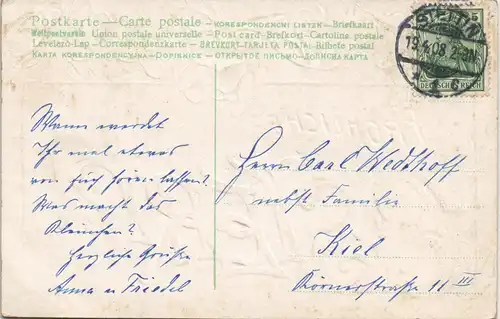 Postkarte — Carte postale — KORESPONDENČNÍ LÍSTEK — Brevkaart
Weltpostverein Union postale universelle — Postcard Brefkort — Cartolina postale
Levelező-Lap — Correspondenzkarte — BREVKORT-TARJETA POSTAL Bilhete postal
KARTA KORESPONDENCYJNA — DOPISNICE — ОТКРЫТОЕ ПИСЬМО — ДОПИСНА КАРТА
STETTIN
19.4.08
5
DEUTSCHES REICH
FRÖHLICHE
Wann werdet
Ihr mal etwas
von Euch hören lassen?
Was macht das
Kleinchen?
Herzliche Grüße
Anna u Friedel
Herrn Carl Wedthoff
nebst Familie
Kiel
Körnerstraße 11 III